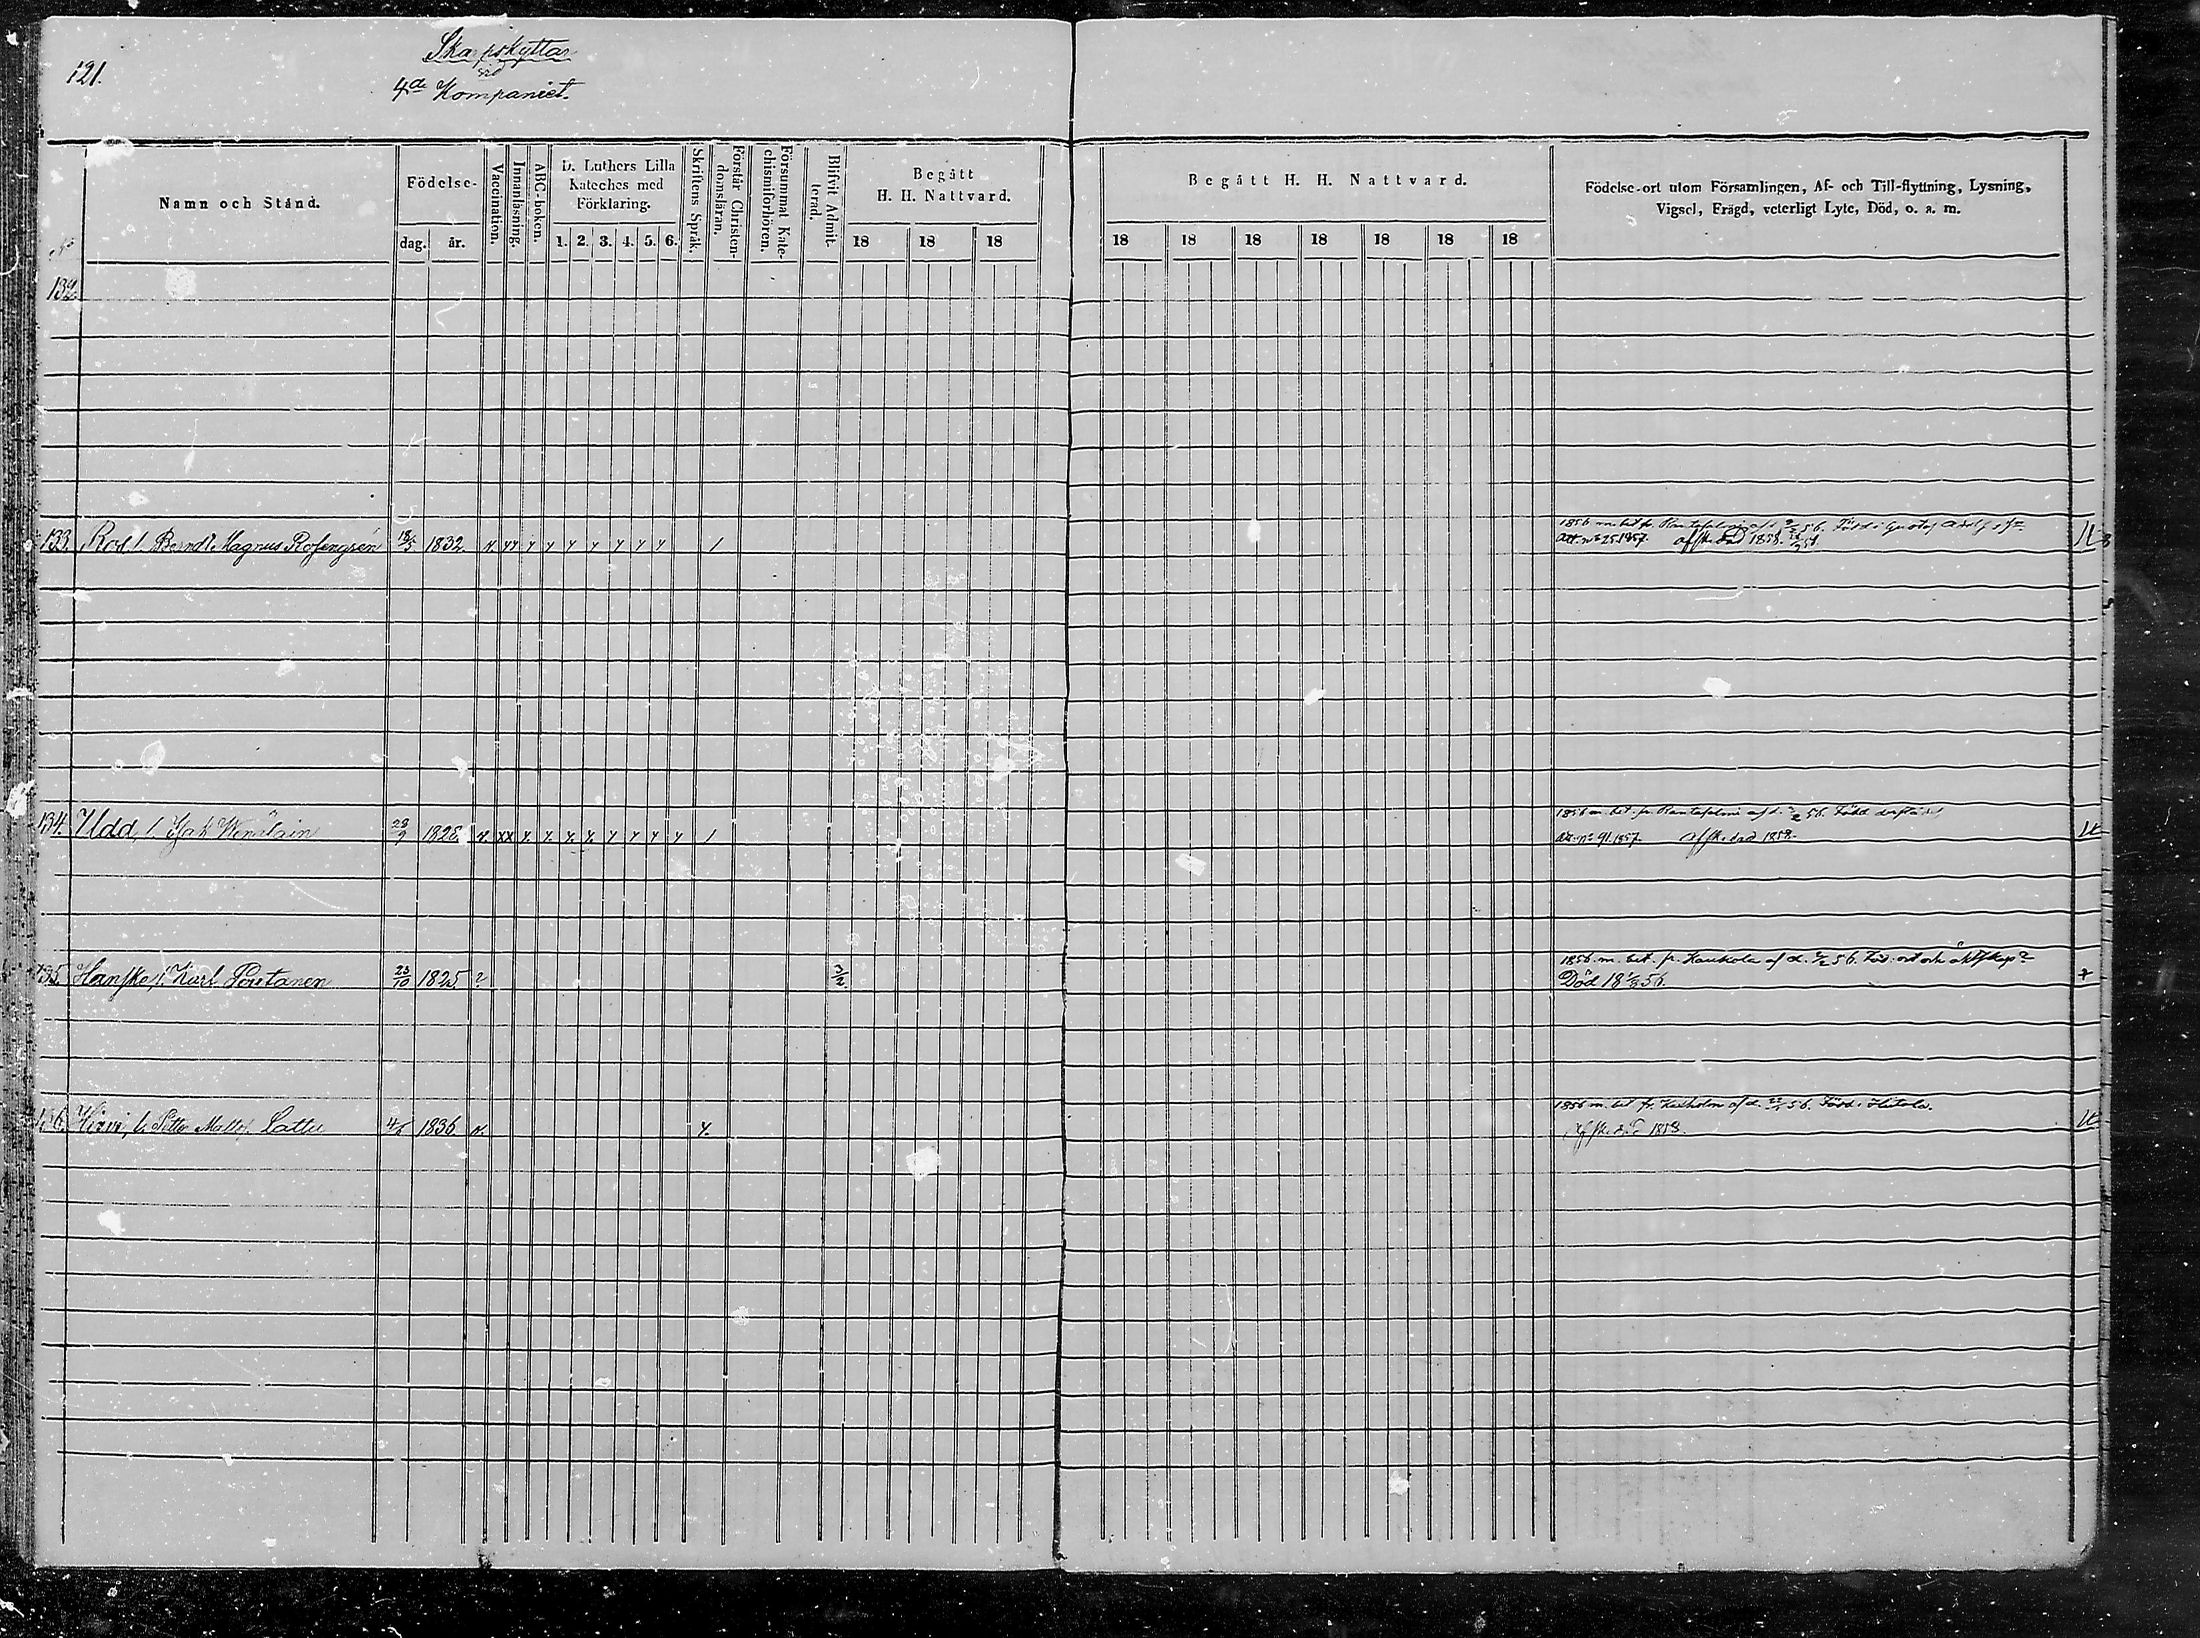 121.
Skarpskyttar
vid
4de Kompaniet.
Namn och Stånd.
Födelse-
dag. år.
Vaccination.
Innanläsning.
ABC-boken.
D. Luthers Lilla
Kateches med
Förklaring.
1. 2. 3. 4. 5. 6.
Skriftens Språk.
Förstår Christen-
domsläran.
Försummat Kate-
chismiförhören.
Blifvit Admit-
terad.
Begått
H. H. Nattvard.
18 18 18
Begått H. H. Nattvard.
18 18 18 18 18 18 18
Födelse-ort utom Församlingen, Af- och Till-flyttning, Lysning,
Vigsel, Frägd, veterligt Lyte, Död, o. a. m.
No
132.
133. Ros /. Berndt Magnus Rosengrén 18/5 1832. x xx x x x x x x x x /
1856 m. bet. fr. Rantasalmi af d. 56. Född i Gustaf Adolfs
Att. No 25. 1857. afskedad 1858.
134. Udd, /. Isak 28/9 1828. x. xx x. x. x. x. x x x x /
1856 m. bet. fr. Rantasalmi af d. 56. Född
Att. No 91. 1857. afskedad 1858.
135. Hanske /. Karl Poutanen 23/10 1825. ? 3/2.
1856. m. bet. fr. Kaukola af d. 56. Föd: ort och äktskap?
Död 56.
136. Hirvi, /. Petter Mattsf. Lattu 1836 x. x.
1856 m. bet. fr. af d. 56. Född i Hiitola.
Afskedad 1858.